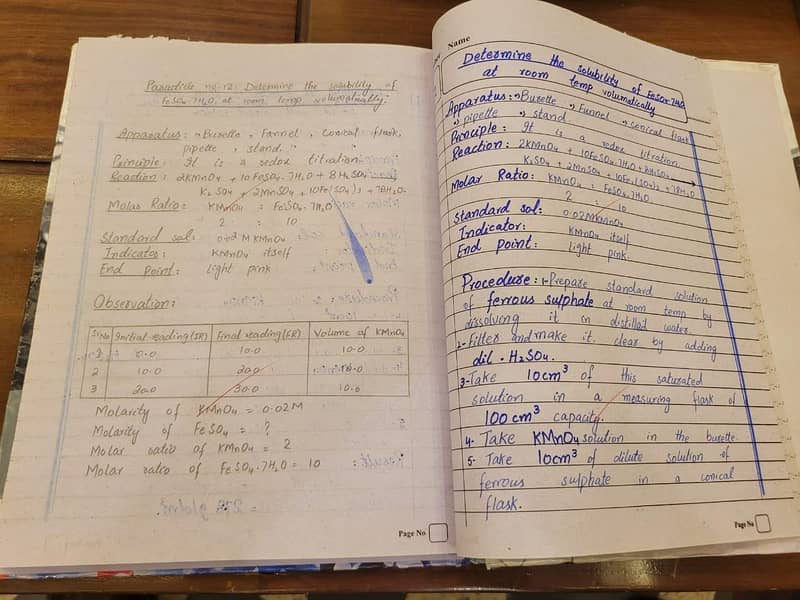 Practicle no-12: Determine the solubility of
FeSO4.7H2O at room temp volumatically:
Apparatus: → Burette, Fannel, conical flask,
pipette, stand.
Principle: It is a redox titration.
Reaction: 2KMnO4 + 10FeSO4.7H2O + 8H2SO4
K2SO4 + 2MnSO4 + 10Fe(SO4)3 + 78H2O.
Molar Ratio: KMnO4 : FeSO4.7H2O
2 : 10
Standard sol: 0.02 M KMnO4
Indicator: KMnO4 itself
End Point: Light pink
Observation:
Sr.No Initial reading(IR) Final reading(FR) Volume of KMnO4
1 0.0 10.0 10.0
2 10.0 20.0 10.0
3 20.0 30.0 10.0
Molarity of KMnO4 = 0.02M
Molarity of FeSO4 = ?
Molar ratio of KMnO4 = 2
Molar ratio of FeSO4.7H2O = 10
Page No
Name
Determine the solubility of FeSO4.7H2O
at room temp volumatically
Apparatus: → Burette → Funnel → conical flask
→ pipette → stand
Principle: It is a redox titration
Reaction: 2KMnO4 + 10FeSO4.7H2O + 8H2SO4
K2SO4 + 2MnSO4 + 10Fe(SO4)3 + 78H2O
Molar Ratio: KMnO4 : FeSO4.7H2O
2 : 10
Standard sol: 0.02MKMnO4
Indicator: KMnO4 itself
End Point: Light pink.
Procedure: 1-Prepare standard solution
of ferrous sulphate at room temp by
dissolving it in distilled water.
2- Filter and make it. clear by adding
dil. H2SO4.
3-Take 10cm³ of this saturated
solution in a measuring flask of
100 cm³ capacity.
4- Take KMnO4 solution in the burette.
5- Take 10cm³ of dilute solution of
ferrous sulphate in a conical
flask.
Page No